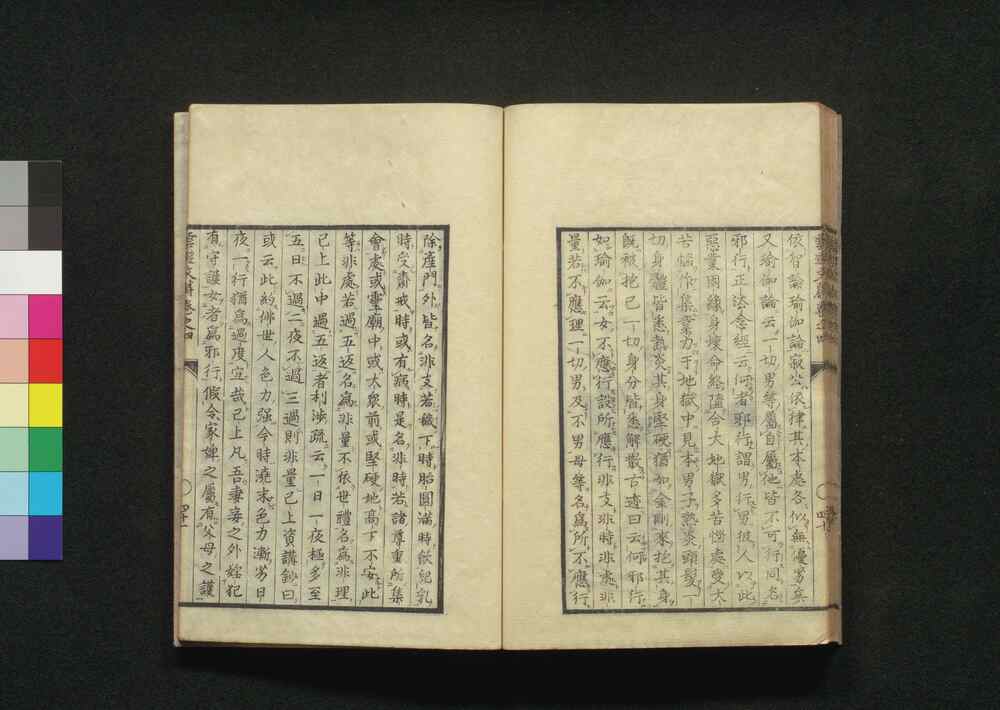 依智論瑜伽論寂公依律其本處各似無優劣矣
又瑜伽論云一切男等屬自屬他皆不可行同名
邪行正法念經云何者邪行謂男行男彼人以此
惡業因緣身壞命終墮合大地獄多苦惱處受大
苦惱作集業力于地獄中見本男子熱炎頭髮一
切身體皆悉熱炎其身堅硬猶如金剛來抱其身
既被抱已一切身分皆悉解散古迹曰云何邪行
如瑜伽云女不應行設所應行非支非時非處非
量若不應理一切男及不男母等名爲所不應行
除産門外皆名非支若穢下時胎圓滿時飲兒乳
時受齋戒時或有病時是名非時若諸尊重所集
會處或靈廟中或大衆前或堅硬地高下不安此
等非處若過五返名爲非量不依世禮名爲非理
已上此中過五返者利涉疏云一日一夜極多至
五日不過二夜不過三過則非量已上資講鈔曰
或云此約佛世人色力强今時澆末色力漸劣日
夜一行猶爲過度宜哉已上凡吾妻妾之外婬犯
有守護女者爲邪行假令家婢之屬有父母之護
卷之四